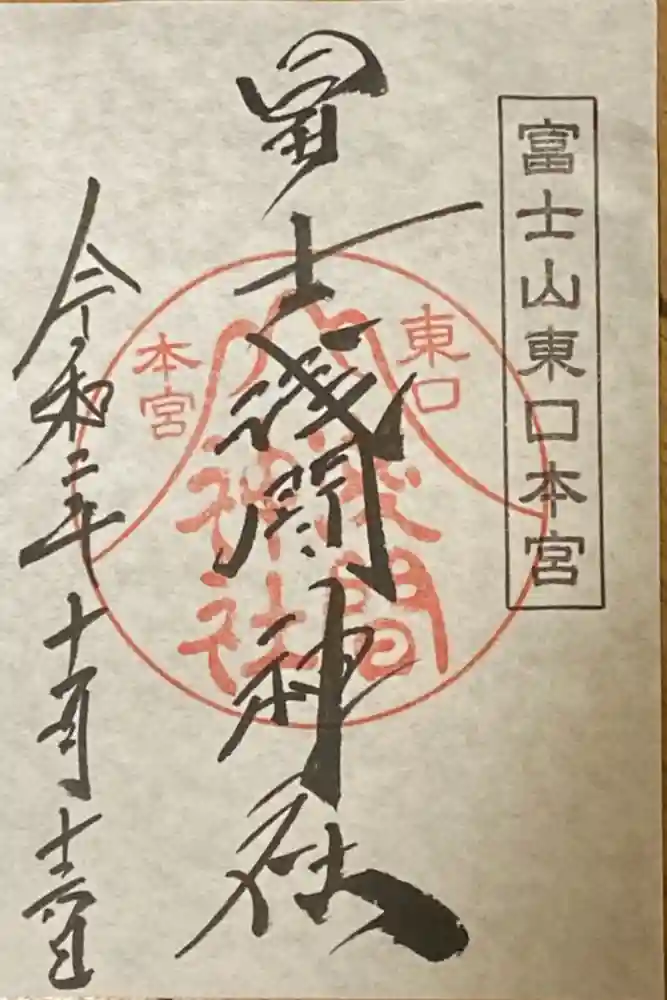 富士山東口本宮
冨士浅間神社
東口
本宮
浅間
神社
令和二年十一月十六日